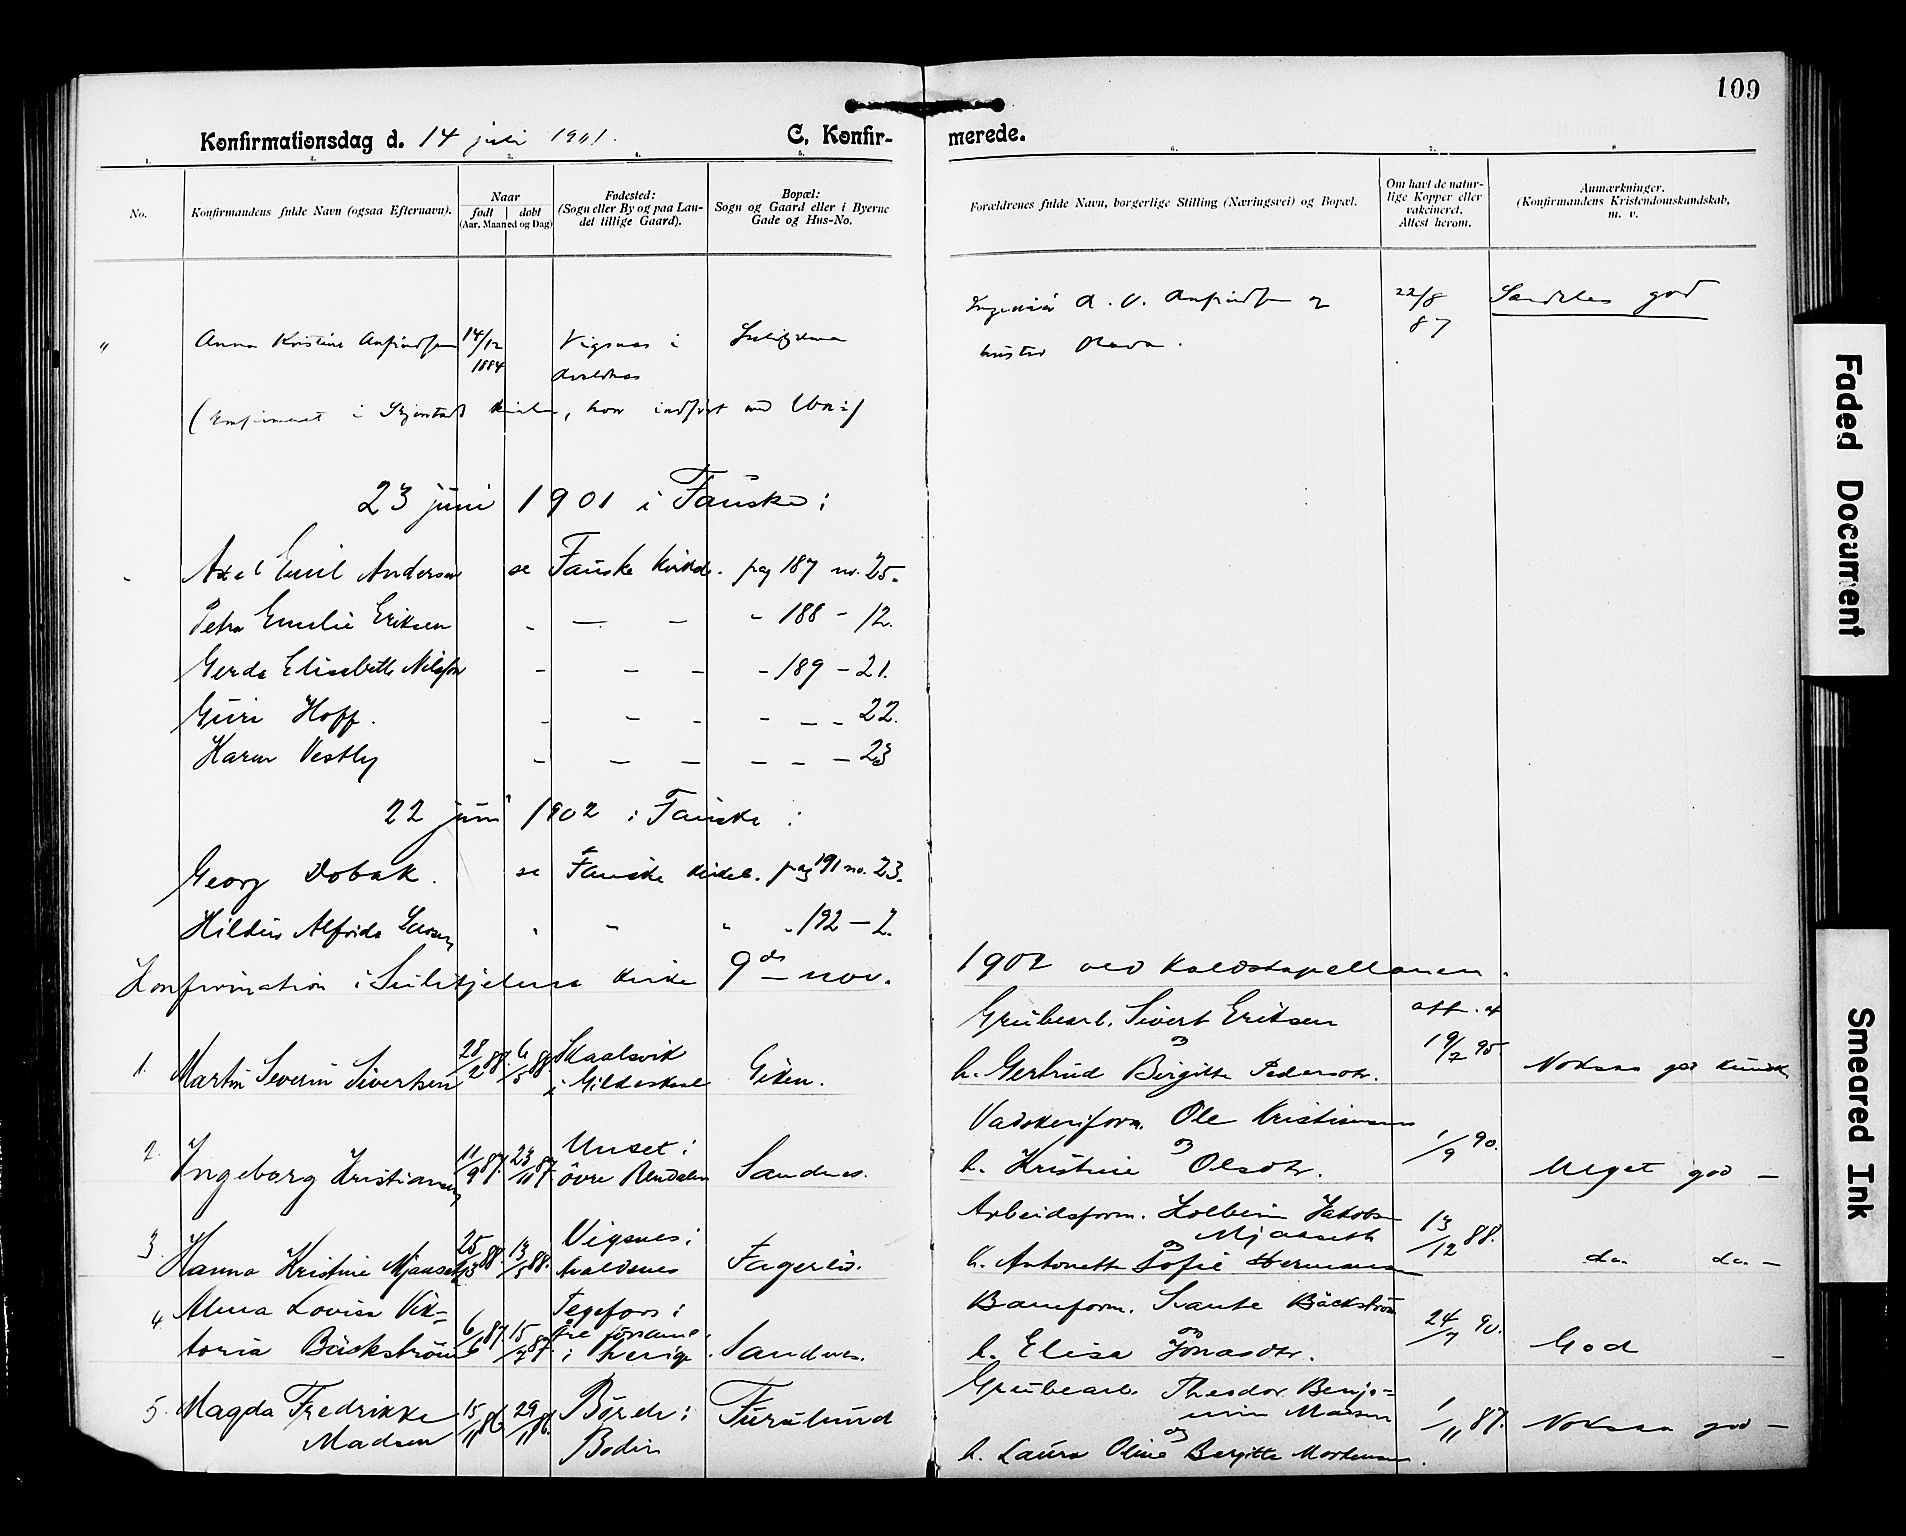 109
Konfirmationsdag d. 14 juli 1901. C. Konfir- merede.
1. 2. 3. 4. 5. 6. 7. 8
No.
Konfirmandens fulde Navn (ogsaa Efternavn).
Naar
født døbt
(Aar, Maaned og Dag)
Fødested:
(Sogn eller By og paa Lan-
det tillige Gaard).
Bopæl:
Sogn og Gaard eller i Byerne
Gade og Hus-No.
Forældrenes fulde Navn, borgerlige Stilling (Næringsvei) og Bopæl.
Om havt de natur-
lige Kopper eller
vakcineret.
Attest herom.
Anmærkninger.
(Konfirmandens Kristendomskundskab,
m. v.
Ingeniør A. O. Anfindsen og 22/8 87 Særdeles god
" Anna Kristine Anfindsen 14/12 1884 Vigsnes i Avaldsnes Sulitjelma
hustru Olava.
(Konfirmeret i Skjerstad kirke, her indført
23 juni 1901 i Fauske:
Axel Emil Andersen se Fauske kirkeb. pag 187 no. 25.
Petra Emilie Eriksen - — - - 188 - 12.
Gerda Elisabeth Nilsson - - - - 189 - 21.
Guri Hoff. - - - - - - 22.
Karen Vestby - - - - - - 23
22 juni 1902 i Fauske:
Georg Dobak. se Fauske kirkeb. pag 191 no. 23.
Hildur Alfrida " - " " 192 - 2.
Konfirmation i Sulitjelma kirke 9de nov. 1902 ved Kaldskapellanen.
Grubearb. Sivert Eriksen att. af
1. Martin Severin Sivertsen 28/2 88. 6/5 88. Skaalsvik i Gildeskaal Giken.
og
h. Gertrud Birgitte Pedersdtr. 19/2 95. Noksaa god kundsk
Vaskeriform. Ole Kristiansen
2. Ingeborg Kristiansen 11/9 87. 23/11 87. Unset i øvre Rendalen Sandnes.
og
h. Kristine Olsdtr. 1/9 90. Meget god —
Arbeidsform. Kolbein Jakobsen
Mjaaseth
3. Hanna Kristine Mjaaseth 25/3 88. 13/5 88. Vigsnes i Avaldsnes Fagerli.
og
h. Antonette Sofie Hermansen 13/12 88. do. do. —
4. Alma Lovisa Vik-
toria Bäckström 6/6 87. 15/7 87. Tegefors i Åre i Sverige. Sandnes.
Baneform. Svante Bäckström
og
h. Elisa Jonasdtr. 24/7 90. God —
5. Magda Fredrikke
Madsen 15/11 86. 29/11 86. Bodin Furulund
Grubearb. Theodor Benja-
min Madsen
og
h. Laura Oline Bergitte Mortensen. 1/11 87. Noksaa god —
Faded Document
Smeared Ink